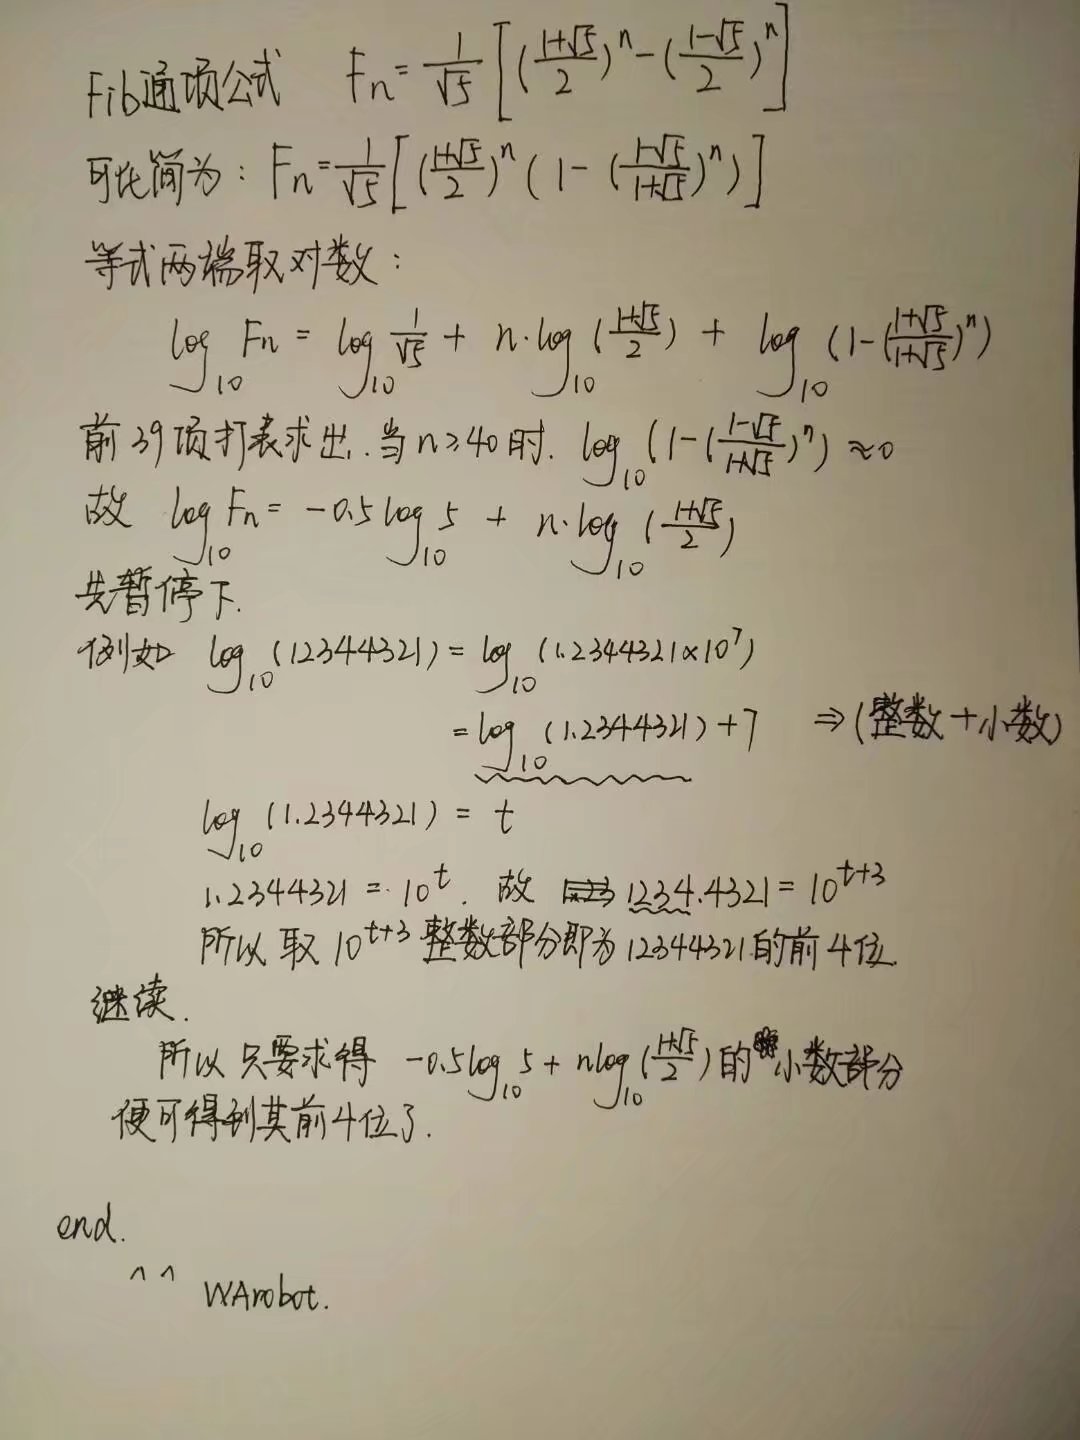 Fib通项公式 Fn = 1/√5 [ ((1+√5)/2)^n - ((1-√5)/2)^n ]
可化简为: Fn = 1/√5 [ ((1+√5)/2)^n ( 1 - ((1-√5)/(1+√5))^n ) ]
等式两端取对数:
log₁₀ Fn = log₁₀ 1/√5 + n·log₁₀ ((1+√5)/2) + log₁₀ (1-((1+√5)/(1+√5))^n)
前39项打表求出.当n≥40时. log₁₀ (1-((1-√5)/(1+√5))^n) ≈0
故 log₁₀ Fn = -0.5log₁₀ 5 + n·log₁₀ ((1+√5)/2)
先暂停下.
例如 log₁₀ (12344321) = log₁₀ (1.2344321×10^7)
= log₁₀ (1.2344321) + 7 ⇒ (整数+小数)
log₁₀ (1.2344321) = t
1.2344321 = 10^t. 故 1234.4321 = 10^(t+3)
所以取 10^(t+3) 整数部分即为12344321的前4位.
继续.
所以只要求得 -0.5log₁₀ 5 + nlog₁₀ ((1+√5)/2) 的小数部分
便可得到其前4位了.
end.
^ ^ WArobot.